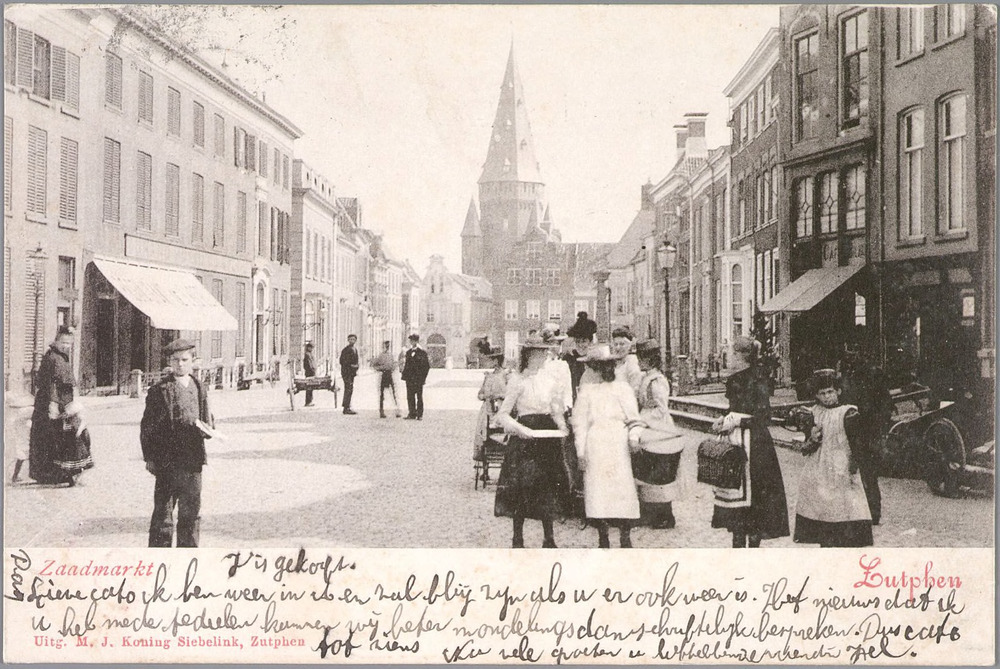 Zaadmarkt
Vis gekocht.
Zutphen
Lieve cato ik ben weer in en zal blij zijn als u er ook weer is. Het nieuws dat ik
u heb mede te deelen kunnen wij beter mondelings dan schriftelijk bespreken. Dus cato
Uitg. M. J. Koning Siebelink, Zutphen
tot ziens Nu vele groeten u